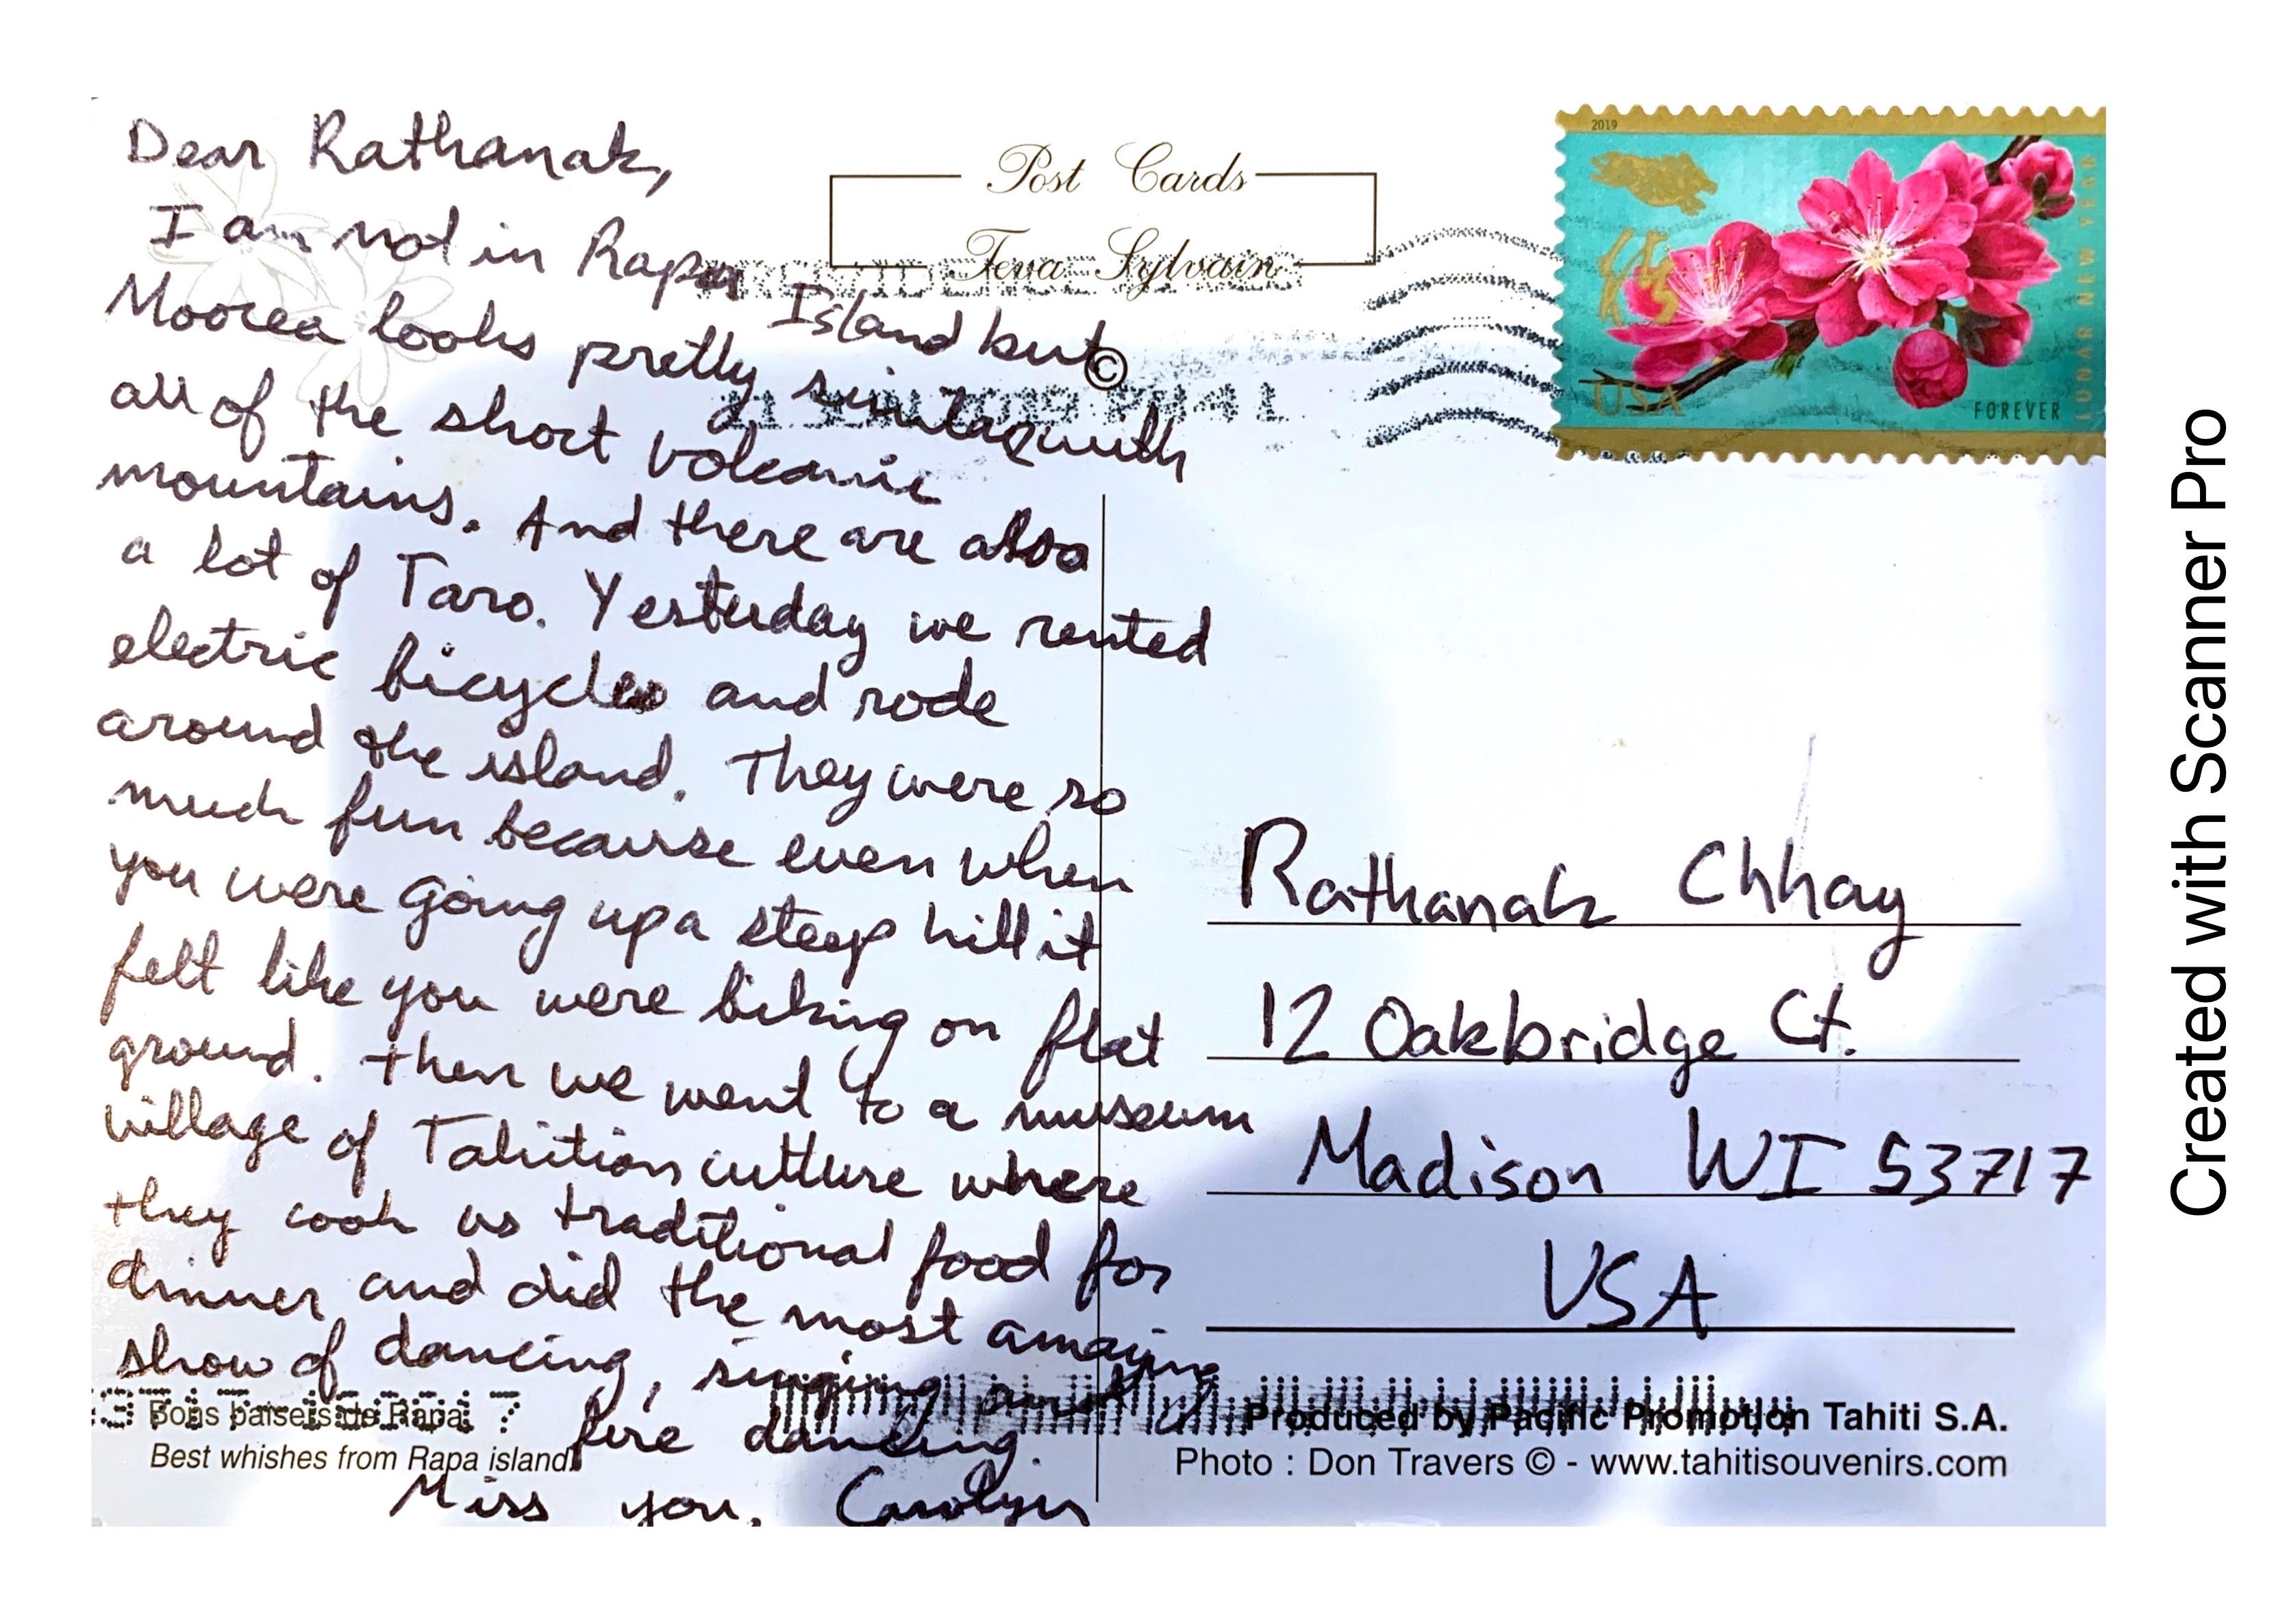 Dear Rathanak,
I am not in Rapa Island but
Moorea looks pretty similar with
all of the short volcanic
mountains. And there are also
a lot of Taro. Yesterday we rented
electric bicycles and rode
around the island. They were so
much fun because even when
you were going up a steep hill it
felt like you were biking on flat
ground. Then we went to a museum
village of Tahition culture where
they cook us traditional food for
dinner and did the most amazing
show of dancing, singing and
fire dancing.
Miss you. Carolyn
Post Cards
Teva Sylvain
©
2019
LUNAR NEW YEAR
USA
FOREVER
Rathanak Chhay
12 Oakbridge Ct.
Madison WI 53717
USA
Bons baisers de Rapa
Best whishes from Rapa island
Produced by Pacific Promotion Tahiti S.A.
Photo : Don Travers © - www.tahitisouvenirs.com
Created with Scanner Pro